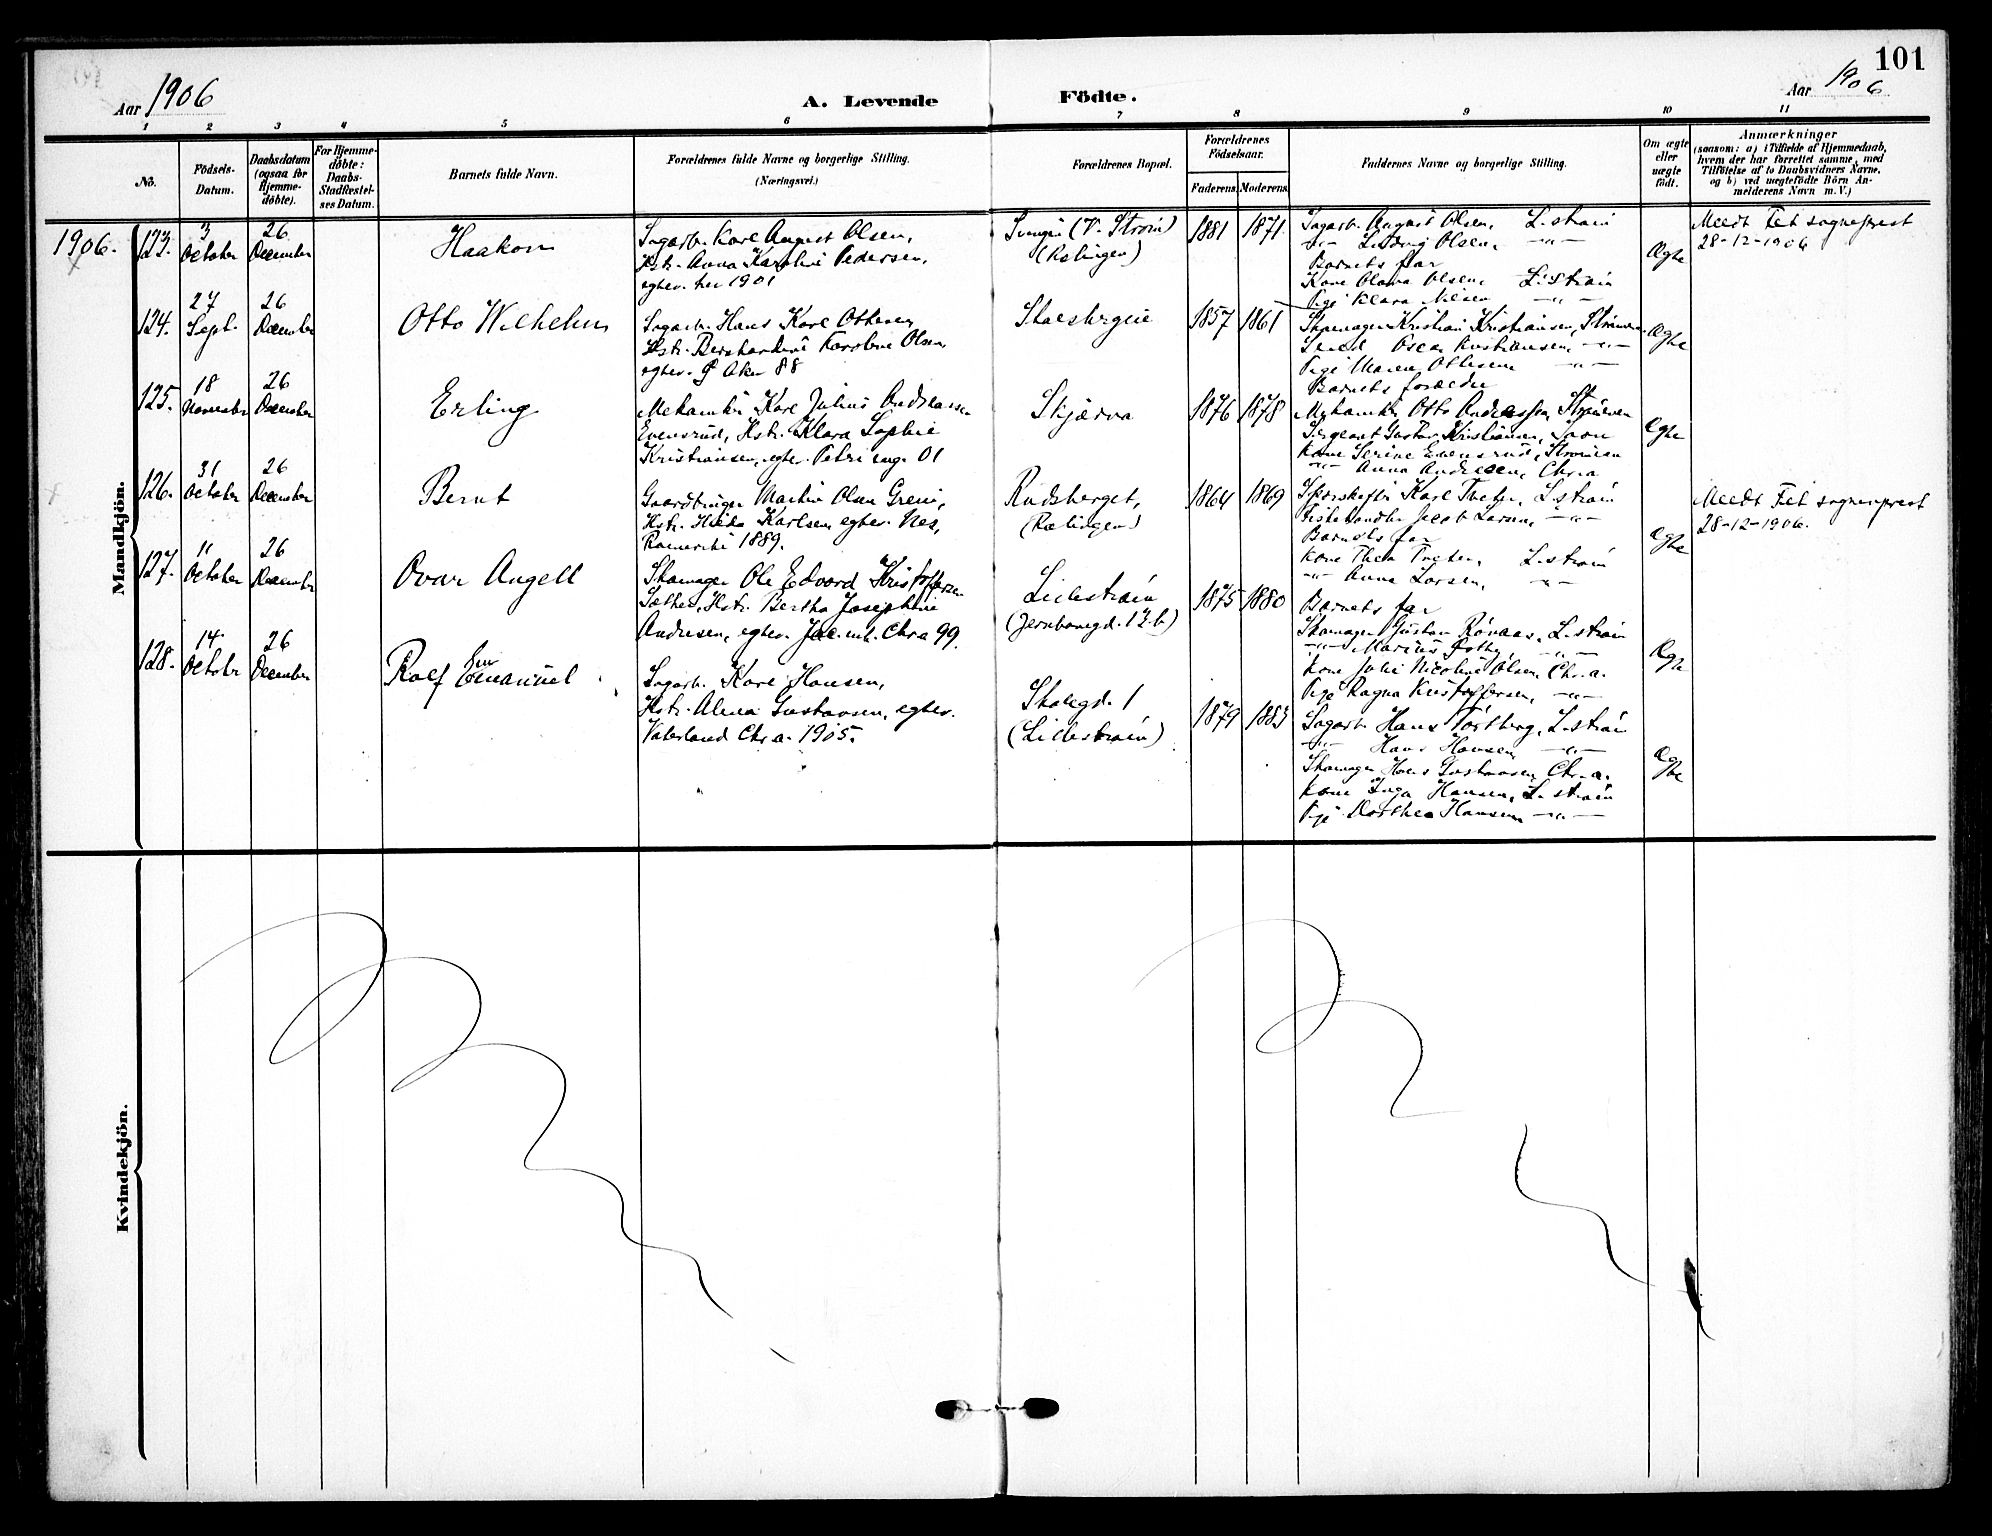 101
Aar 1906
A. Levende Födte.
Aar 1906
1 2 3 4 5 6 7 8 9 10 11
No.
Födsels-
Datum.
Daabsdatum
(ogsaa for
Hjemme-
döbte).
For Hjemme-
döbte:
Daabs-
Stadfæstel-
ses Datum.
Barnets fulde Navn.
Forældrenes fulde Navne og borgerlige Stilling.
(Næringsvei.)
Forældrenes Bopæl.
Forældrenes
Födselsaar.
Faderens. Moderens.
Faddernes Navne og borgerlige Stilling.
Om ægte
eller
uægte
födt.
Anmærkninger
(saasom: a) i Tilfælde af Hjemmedaab,
hvem der har forrettet samme, med
Tilföielse af to Daabsvidners Navne,
og b) ved uægtefödte Börn An-
melderens Navn m. V.)
Mandkjön.
1906.
123.
3
October
26
December
Haakon
Sagarb. Karl August Olsen,
Hstr. Anna Karoline Pedersen,
egtev. her 1901
(V. Strøm)
(Rælingen)
1881 1871
Sagarb. August Olsen, L.strøm
-"- Ludvig Olsen, -"-
Barnets far
Kone Olava Olsen, L.strøm
Pige Klara Nilsen -"-
Ægte
Meldt Fet sogneprest
28-12-1906
124.
27
Sept.
26
December
Otto Wilhelm
Sagarb. Hans Karl Ottesen
Hstr. Bernhardine Karoline Olsen,
egtev. Aker 88
1857 1861
Skomager Kristian Kristiansen, Strømmen
Oscar Kristiansen, -"-
Pige Maren Ottesen -"-
Barnets forældre
Ægte
125.
18
November
26
December
Erling
Mekaniker Karl Julius Andreassen
Evensrud, Hstr. Klara Sophie
Kristiansen, egtev. Petri mgh. 01
Skjærva
1876 1878
Mekaniker Otto Andreassen, Strømmen
Sergeant Gustav Kristiansen,
Kone Serine Evensrud, Strømmen
-"- Anna Andresen, Chr.a
Ægte
126.
31
October
26
December
Bernt
Gaardbruger Martin Olsen Greni,
Hstr. Hilda Karlsen, egtev. Nes,
Romerike 1889.
Rudsberget,
(Rælingen)
1864 1869
Karl Theter, L.strøm
Fiskehandler Jacob Larsen, -"-
Barnets far
Kone Thea Theter, L.strøm
-"- Anna Larsen, -"-
Ægte
Meldt Fet sogneprest
28-12-1906.
127.
11
October
26
December
Ovar Angell
Skomager Ole Edvard Kristoffersen
Sæther, Hstr. Bertha Josephine
Andresen, egtev. Jac. mh. Chr.a 99.
Lillestrøm
(Jernbanegd. 12 b)
1875 1880
Barnets far
Skomager Gustav Rönaas, L.strøm
-"- Marius -"-
Kone Julie Nicoline Olsen, Chr.a.
Pige Ragna Kristoffersen, -"-
Ægte
128.
14
October
26
December
Rolf Emanuel
Em
Sagarb. Karl Hansen,
Hstr. Alma Gustavsen, egtev.
Vaterland Chr.a. 1905.
Storgd. 1
(Lillestrøm)
1879 1883
Sagarb. Hans Torsberg, L.strøm
-"- Hans Hansen, -"-
Skomager Hans Gustavsen, Chr.a.
Kone Inga Hansen, L.strøm
Pige Dorthea Hansen -"-
Ægte
Kvindekjön.